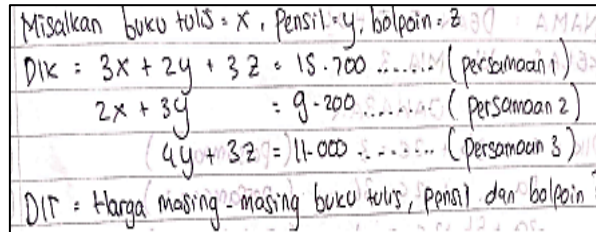 Misalkan buku tulis = x, Pensil = y, bolpoin = z
DIK : 3x + 2y + 3z = 15.700 ....... (persamaan 1)
2x + 3y = 9.200 ....... (persamaan 2)
4y + 3z = 11.000 ....... (persamaan 3)
DIT = Harga masing-masing buku tulis, pensil dan bolpoin ?